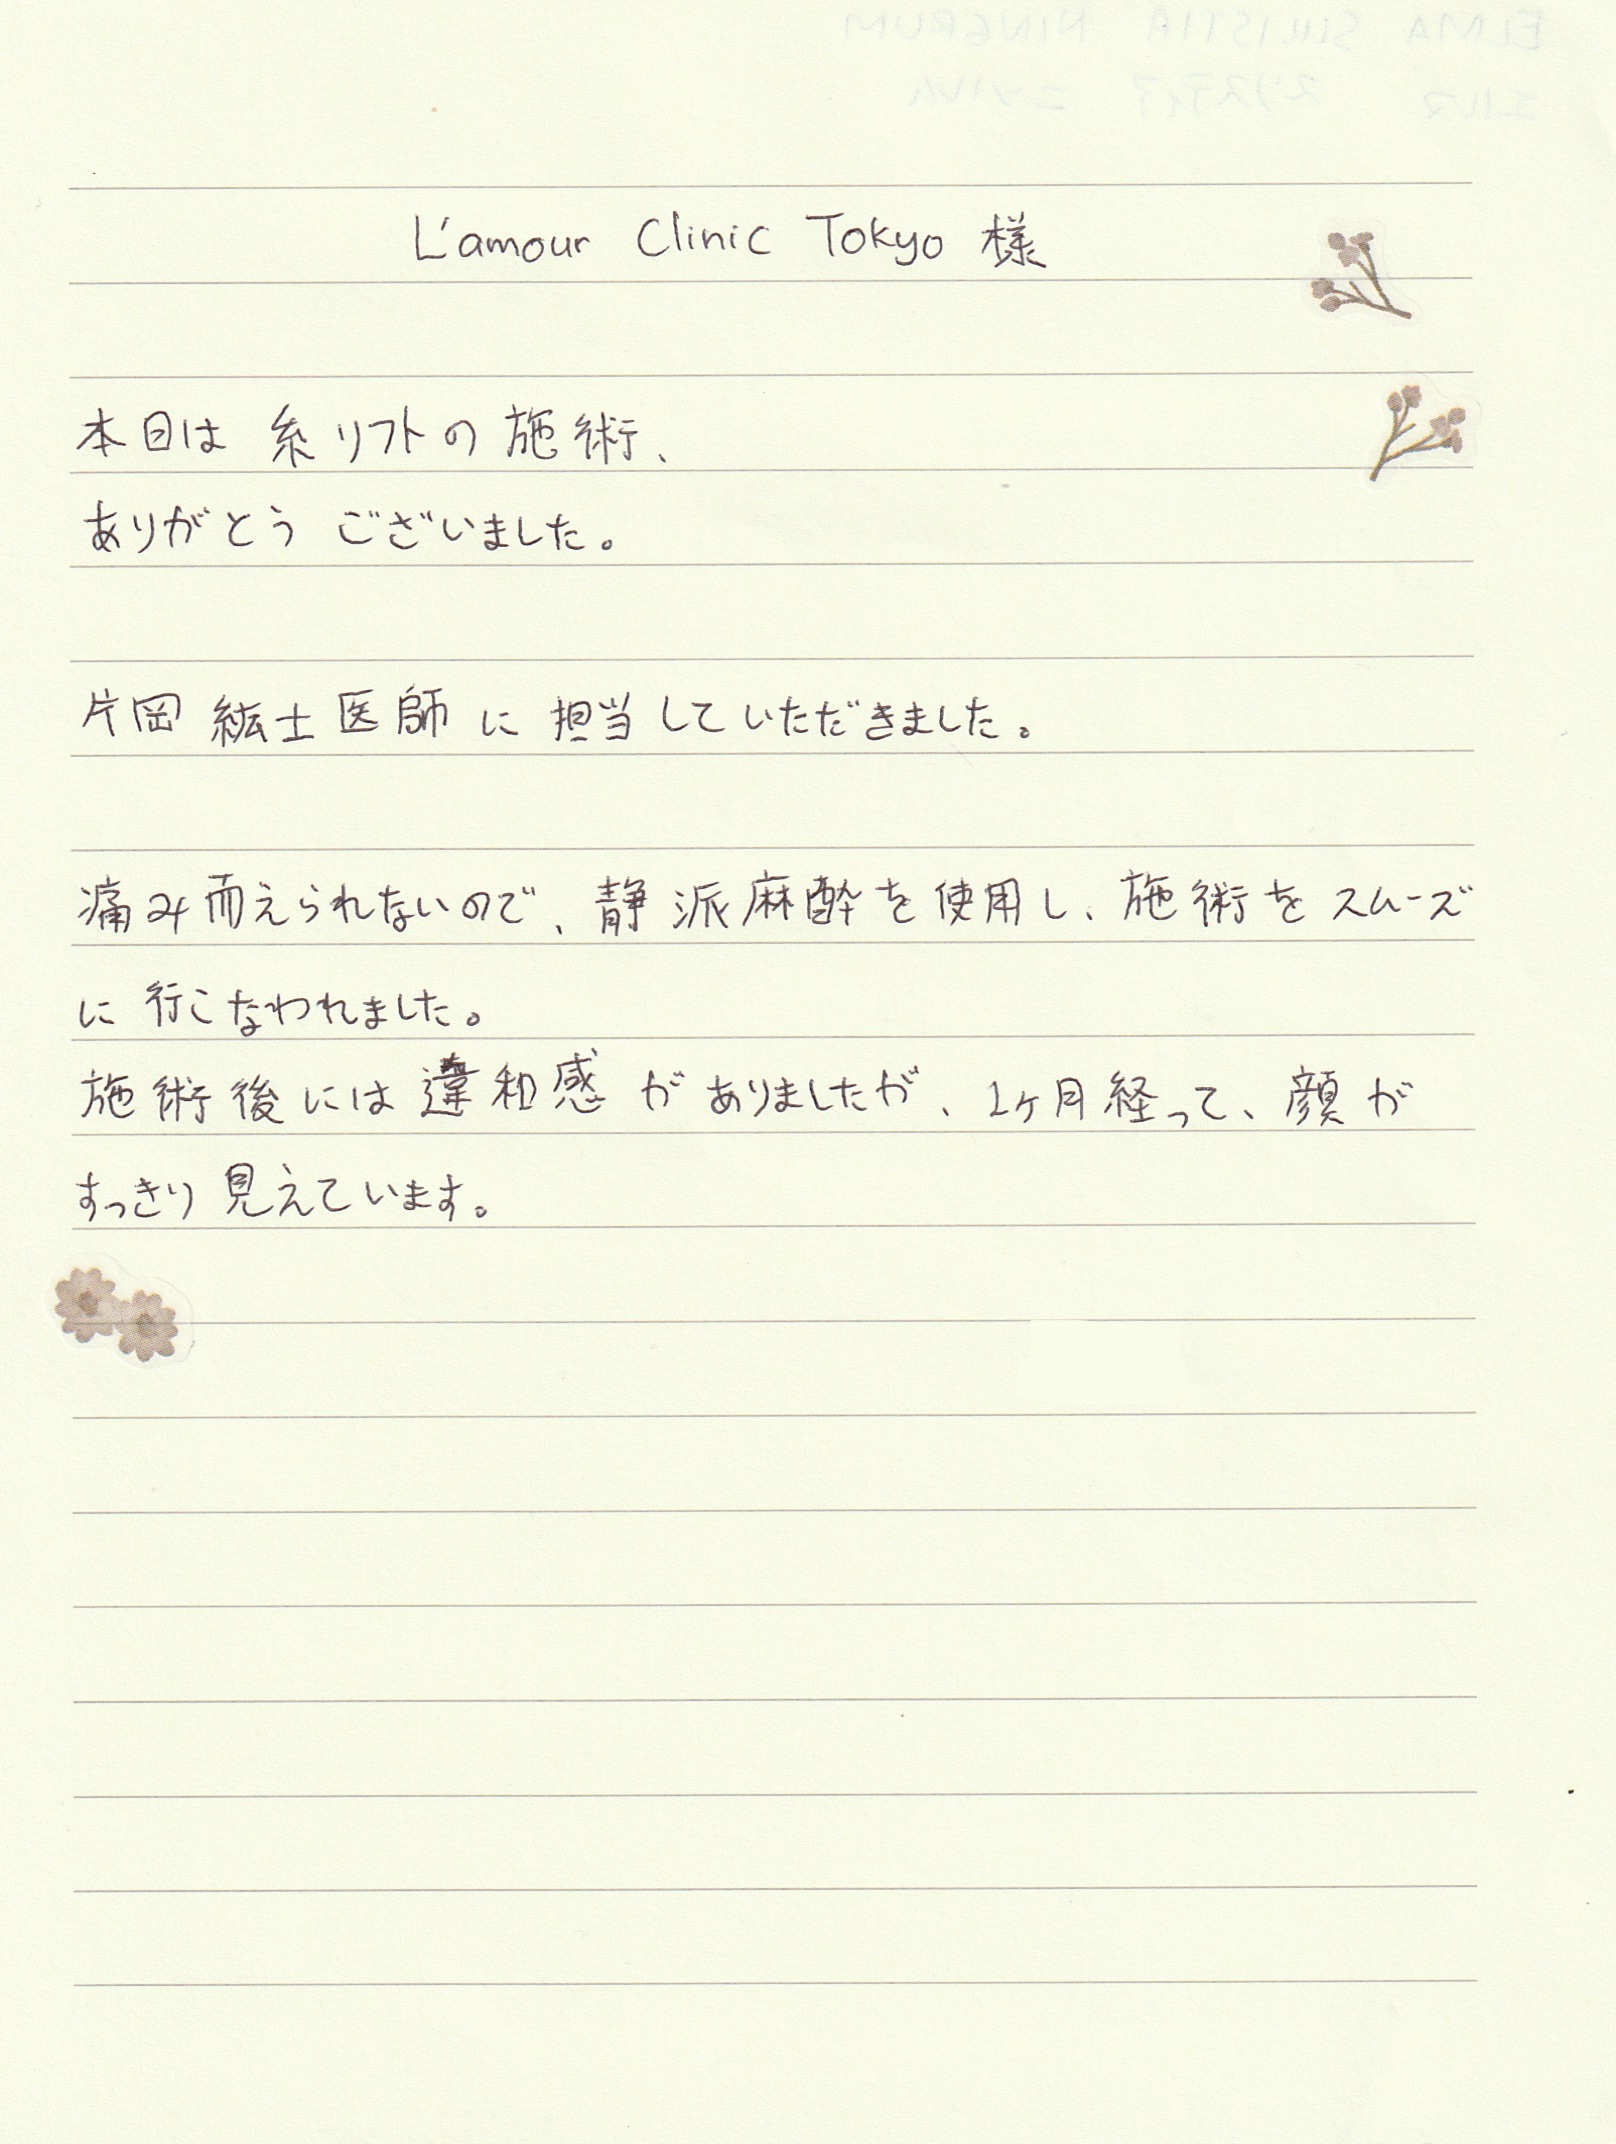 L'amour Clinic Tokyo 様
本日は 糸リフトの 施術、
ありがとう ございました。
片岡 紘士医師 に 担当していただきました。
痛み耐えられないので、静派麻酔を使用し、施術をスムーズ
に 行こなわれました。
施術後には違和感 が ありましたが、1ヶ月経って、顔が
すっきり 見えています。